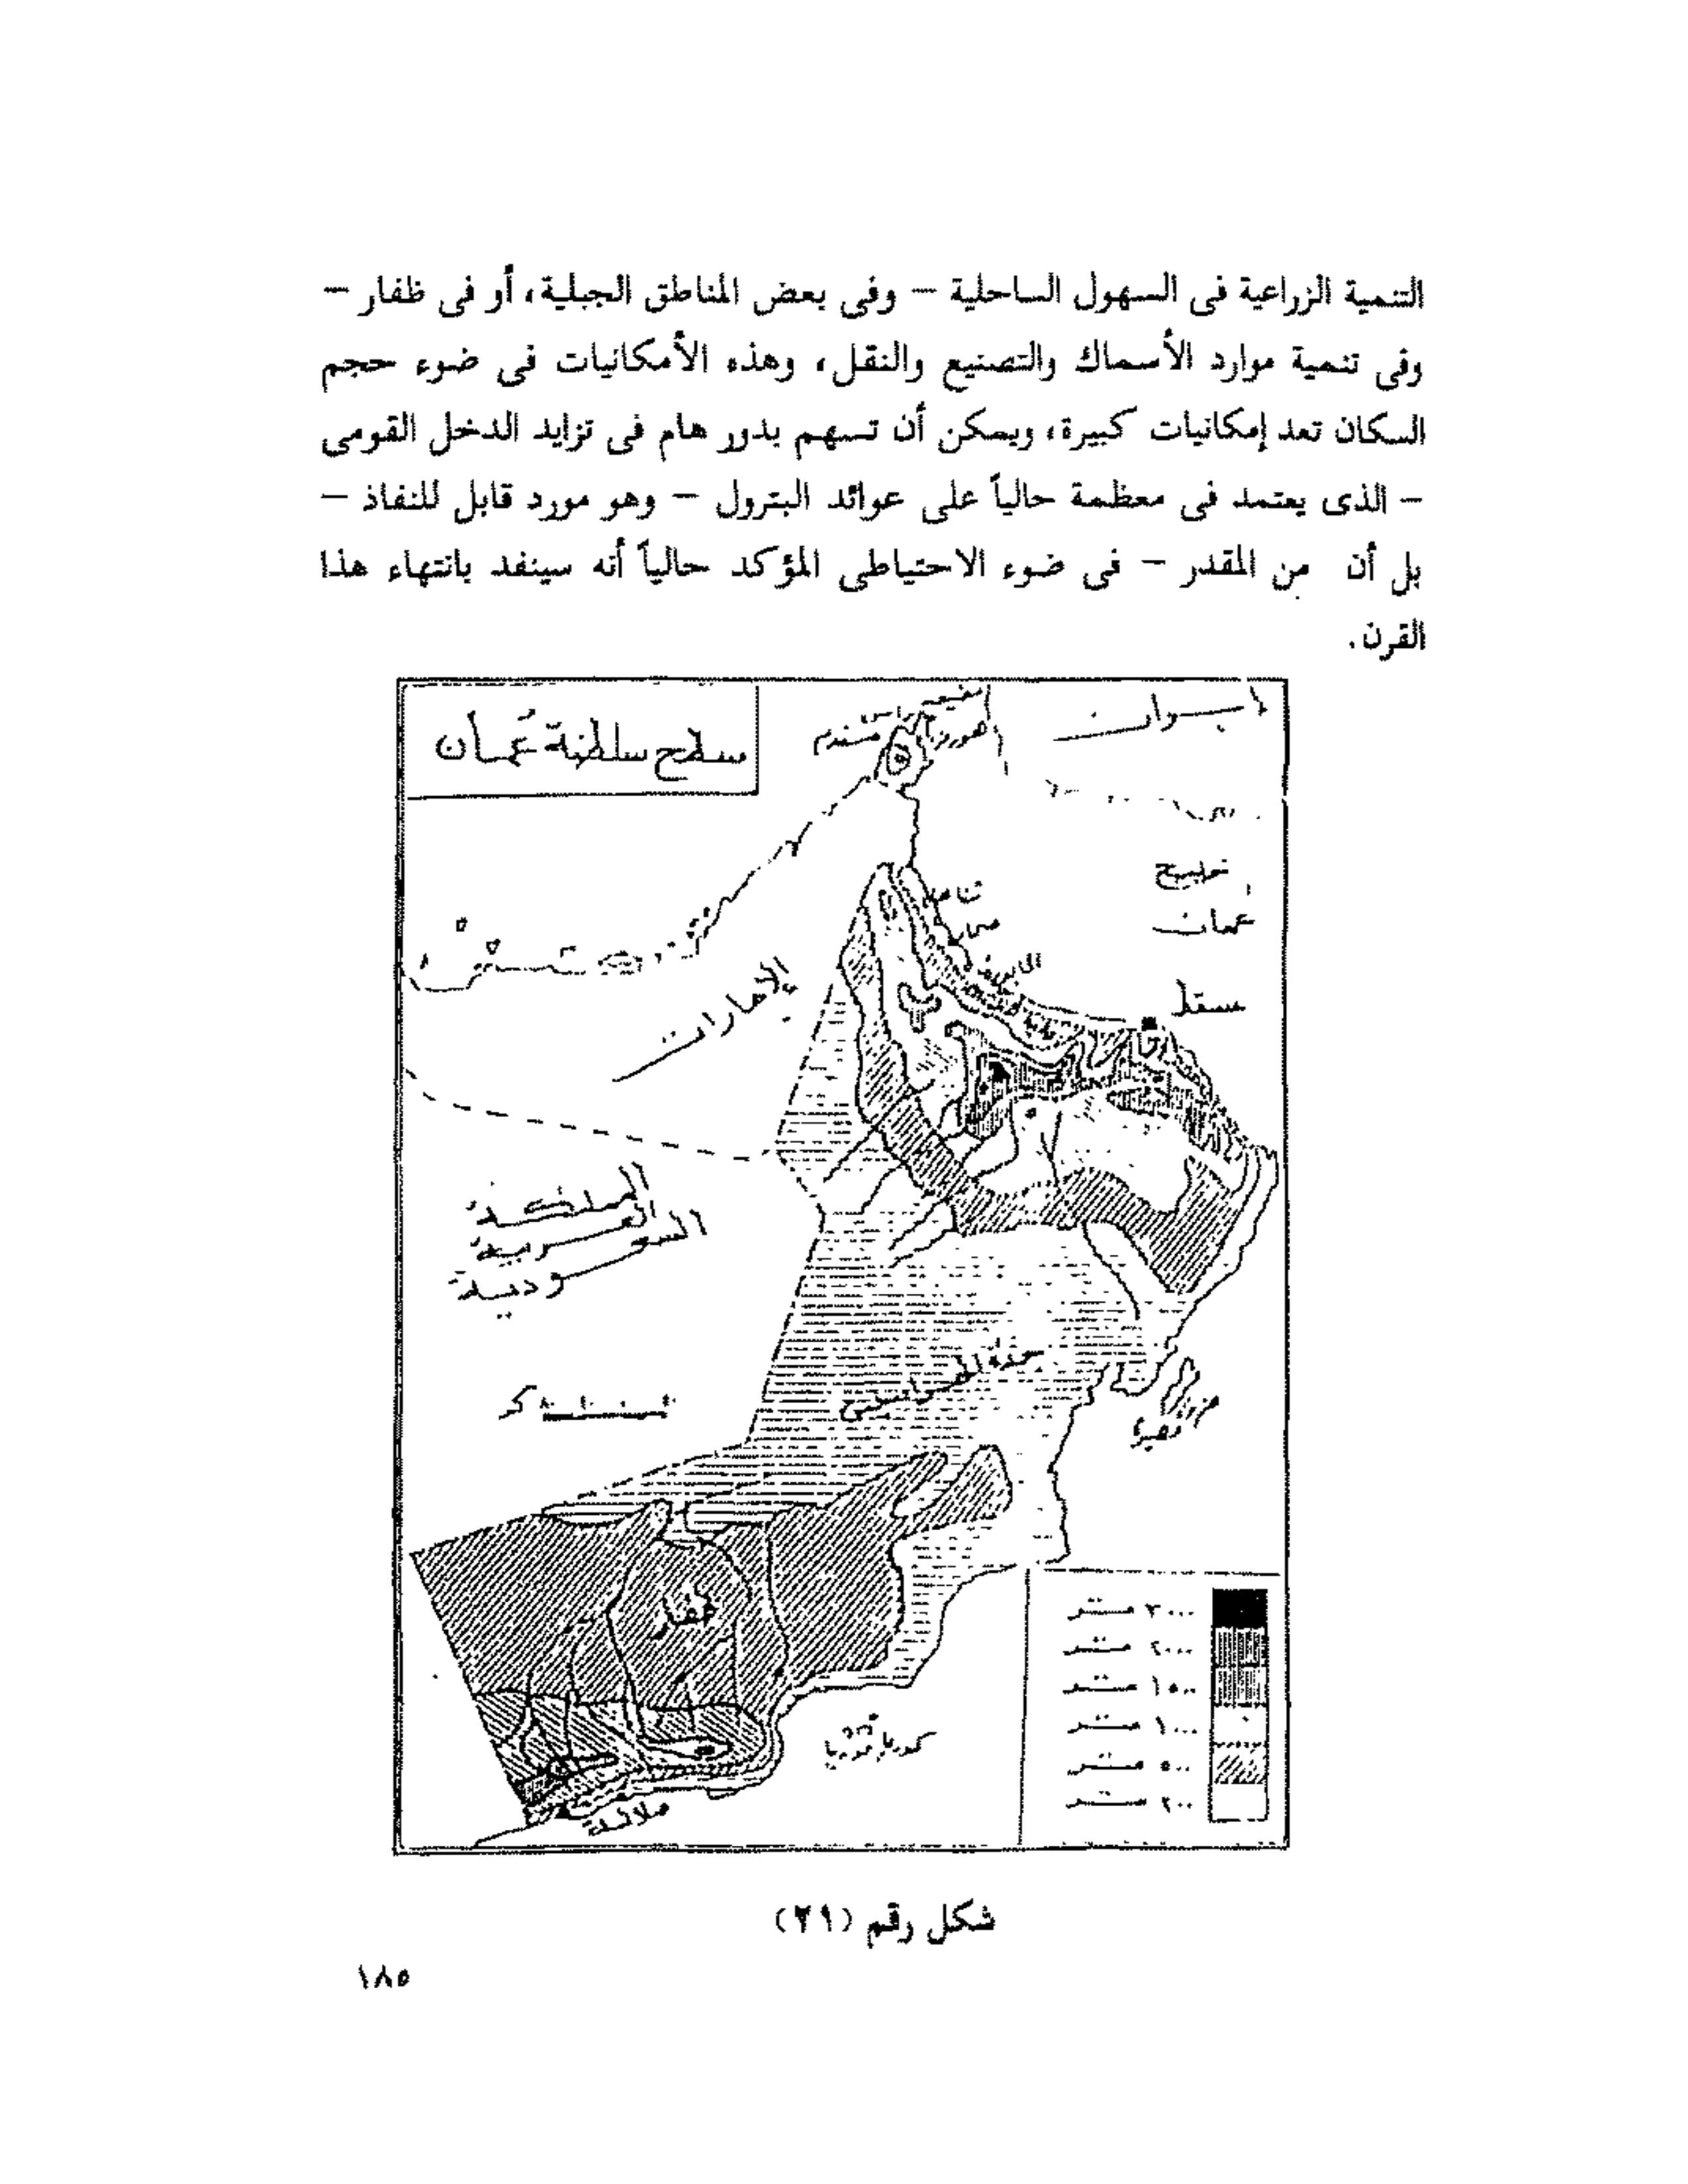 التنمية الزراعية فى السهول الساحلية – وفى بعض المناطق الجبلية، أو فى ظفار –
وفى تنمية موارد الأسماك والتصنيع والنقل، وهذه الأمكانيات فى ضوء حجم
السكان تعد إمكانيات كبيرة، ويمكن أن تسهم بدور هام فى تزايد الدخل القومى
– الذى يعتمد فى معظمة حالياً على عوائد البترول – وهو مورد قابل للنفاذ –
بل أن من المقدر – فى ضوء الاحتياطى المؤكد حالياً أنه سينفد بانتهاء هذا
القرن.
سطح سلطنة عُمان
مضيق
هورمز
راس
مسندم
ايران
خليج
عمان
شناص
صحار
مسقط
الإمارات
المملكة
العربية
السعودية
كم
ظفار
صلالة
٣٠٠٠ متر
٢٠٠٠ متر
١٥٠٠ متر
١٠٠٠ متر
٥٠٠ متر
٢٠٠ متر
شكل رقم (٢٩)
١٨٥